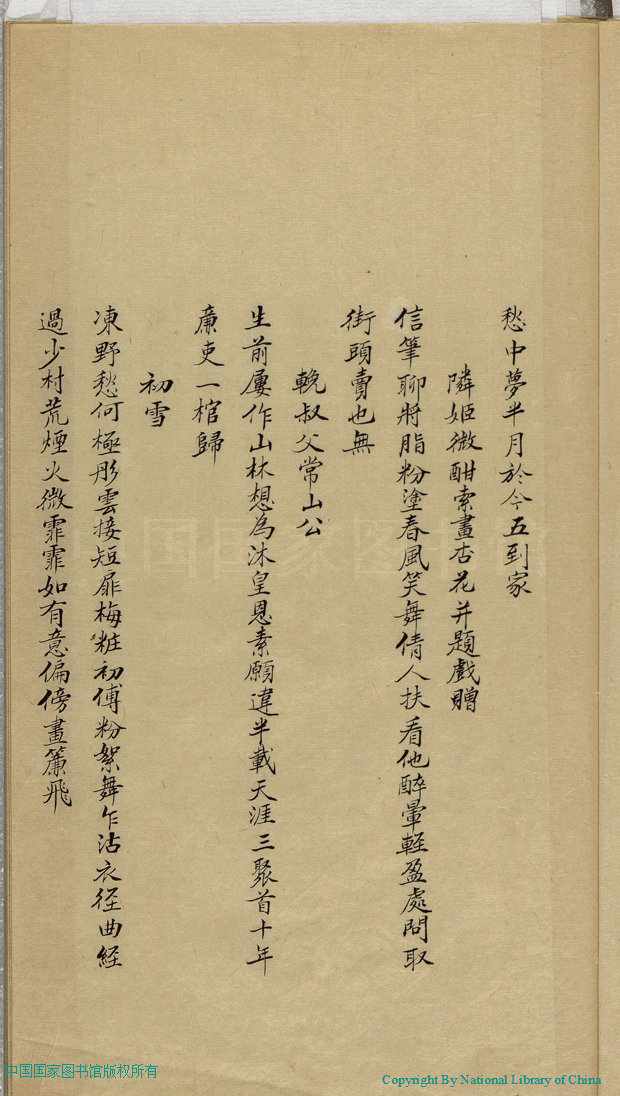 愁中夢半月於今五到家
隣姬微酣索畫杏花并題戲贈
信筆聊將脂粉塗春風笑舞倩人扶看他醉暈輕盈處問取
街頭賣也無
輓叔父常山公
生前屢作山林想為沐皇恩素願違半載天涯三聚首十年
廉吏一棺歸
初雪
凍野愁何極彤雲接短扉梅粧初傅粉絮舞乍沾衣徑曲経
過少村荒煙火微霏霏如有意偏傍畫簾飛
中国国家图书馆
中国国家图书馆版权所有
Copyright By National Library of China